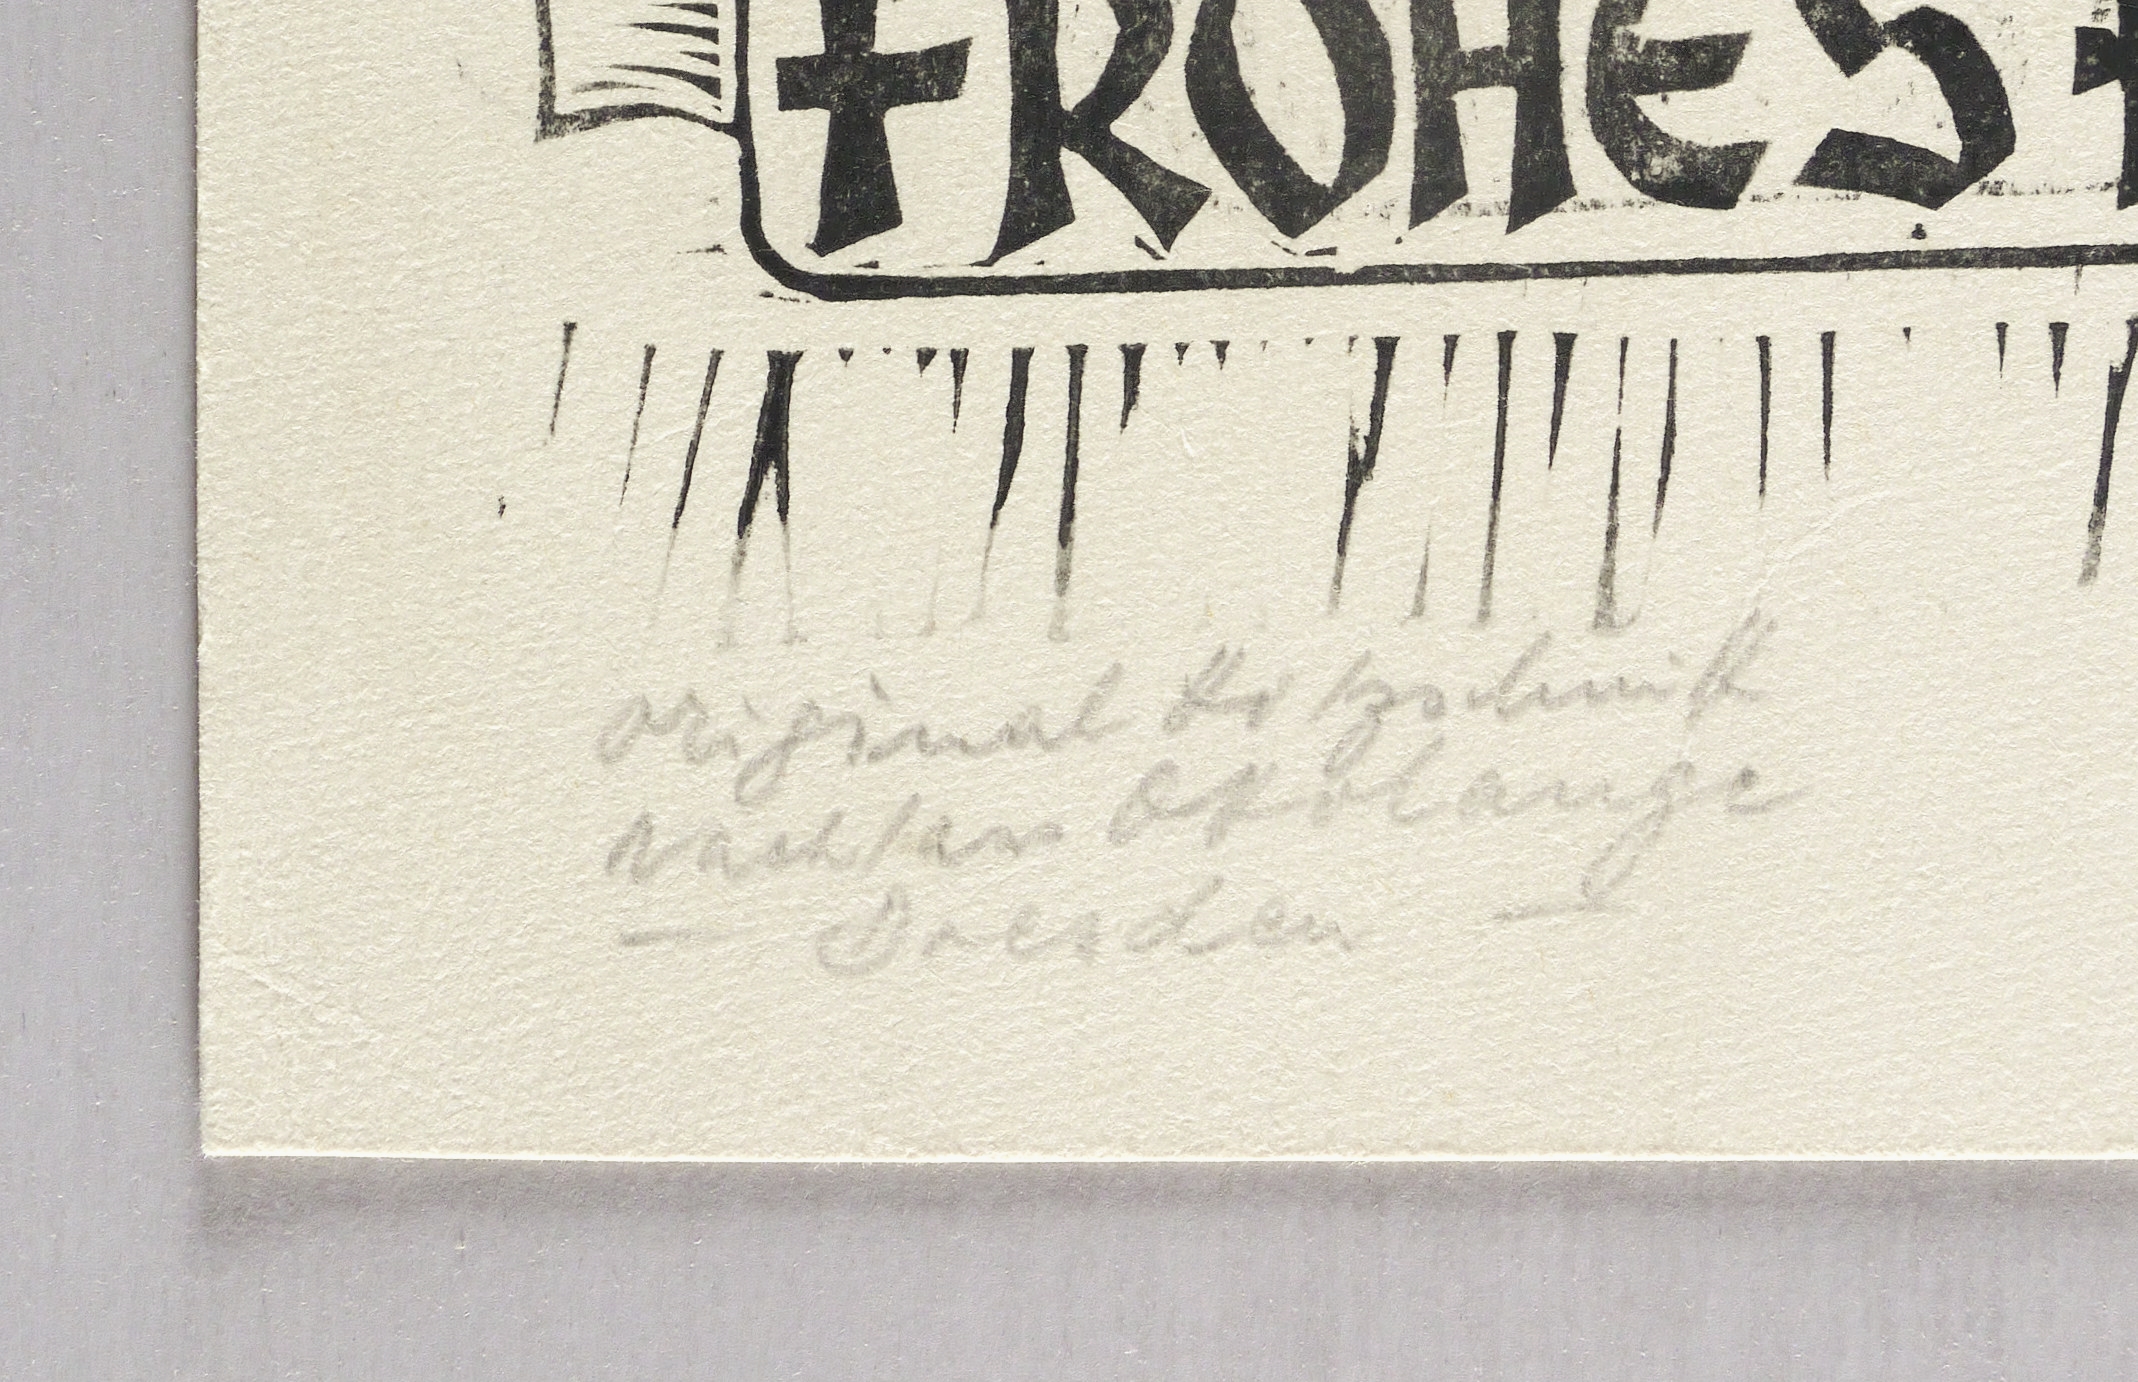 FROHES
original Holzschnitt
Nachlass Otto Lange
— Dresden —